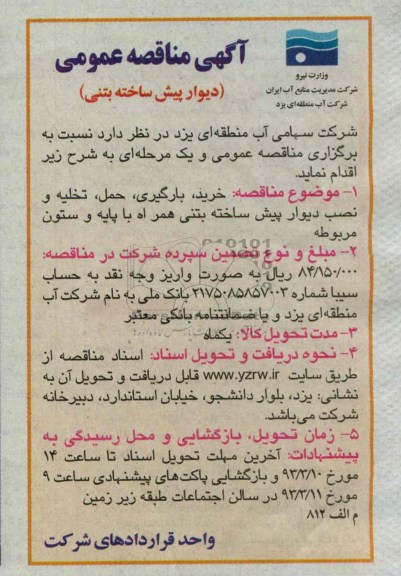 آگهی مناقصه عمومی
(دیوار پیش ساخته بتنی)
وزارت نیرو
شرکت مدیریت منابع آب ایران
شرکت آب منطقه‌ای یزد
شرکت سهامی آب منطقه‌ای یزد در نظر دارد نسبت به
برگزاری مناقصه عمومی و یک مرحله‌ای به شرح زیر
اقدام نماید.
۱- موضوع مناقصه: خرید، بارگیری، حمل، تخلیه و
نصب دیوار پیش ساخته بتنی همراه با پایه و ستون
مربوطه
۲- مبلغ و نوع تضمین سپرده شرکت در مناقصه:
۸۴/۱۵۰/۰۰۰ ریال به صورت واریز وجه نقد به حساب
سیبا شماره ۲۱۷۵۰۸۵۸۵۷۰۰۳ بانک ملی به نام شرکت آب
منطقه‌ای یزد و یا ضمانتنامه بانکی معتبر
۳- مدت تحویل کالا: یکماه
۴- نحوه دریافت و تحویل اسناد: اسناد مناقصه از
طریق سایت www.yzrw.ir قابل دریافت و تحویل آن به
نشانی: یزد، بلوار دانشجو، خیابان استاندارد، دبیرخانه
شرکت می‌باشد.
۵- زمان تحویل، بازگشایی و محل رسیدگی به
پیشنهادات: آخرین مهلت تحویل اسناد تا ساعت ۱۴
مورخ ۹۳/۳/۱۰ و بازگشایی پاکت‌های پیشنهادی ساعت ۹
مورخ ۹۳/۳/۱۱ در سالن اجتماعات طبقه زیر زمین
م الف ۸۱۲
واحد قراردادهای شرکت